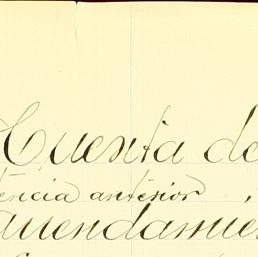 Cuenta de
tencia anterior
auendamie